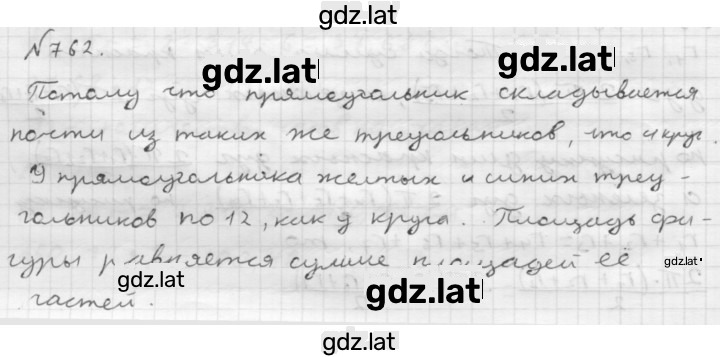 gdz.lat
№762.
gdz.lat
gdz.lat
Потому что прямоугольник складывается
почти из таких же треугольников, что и круг.
У прямоугольника желтых и синих треу-
гольников по 12, как у круга. Площадь фи-
гуры равняется сумме площадей её
gdz.lat
частей.
gdz.lat
gdz.lat
gdz.lat